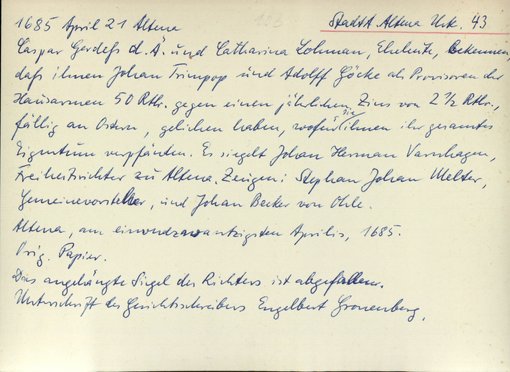 1685 April 21 Altena 153 StadtA Altena Urk. 43
Caspar Gerdeß d. A. und Catharina Lohman, Eheleute, bekennen,
daß ihnen Johan Trimpop und Adolff Göcke als Provisoren der
Hausarmen 50 Rtlr. gegen einen jährlichen Zins von 2 1/2 Rtlr.,
fällig an Ostern, geliehen haben, wofür sie ihnen ihr gesamtes
Eigentum verpfänden. Es siegelt Johan Herman Varnhagen,
Freiheitsrichter zu Altena. Zeugen: Stephan Johan Melter,
Gemeinevorsteher, und Johan Becker von Ohle.
Altena, am einundzwantzigsten Aprilis, 1685.
Orig. Papier.
Das angehängte Siegel des Richters ist abgefallen.
Unterschrift des Gerichtschreibers Engelbert Gronenberg.